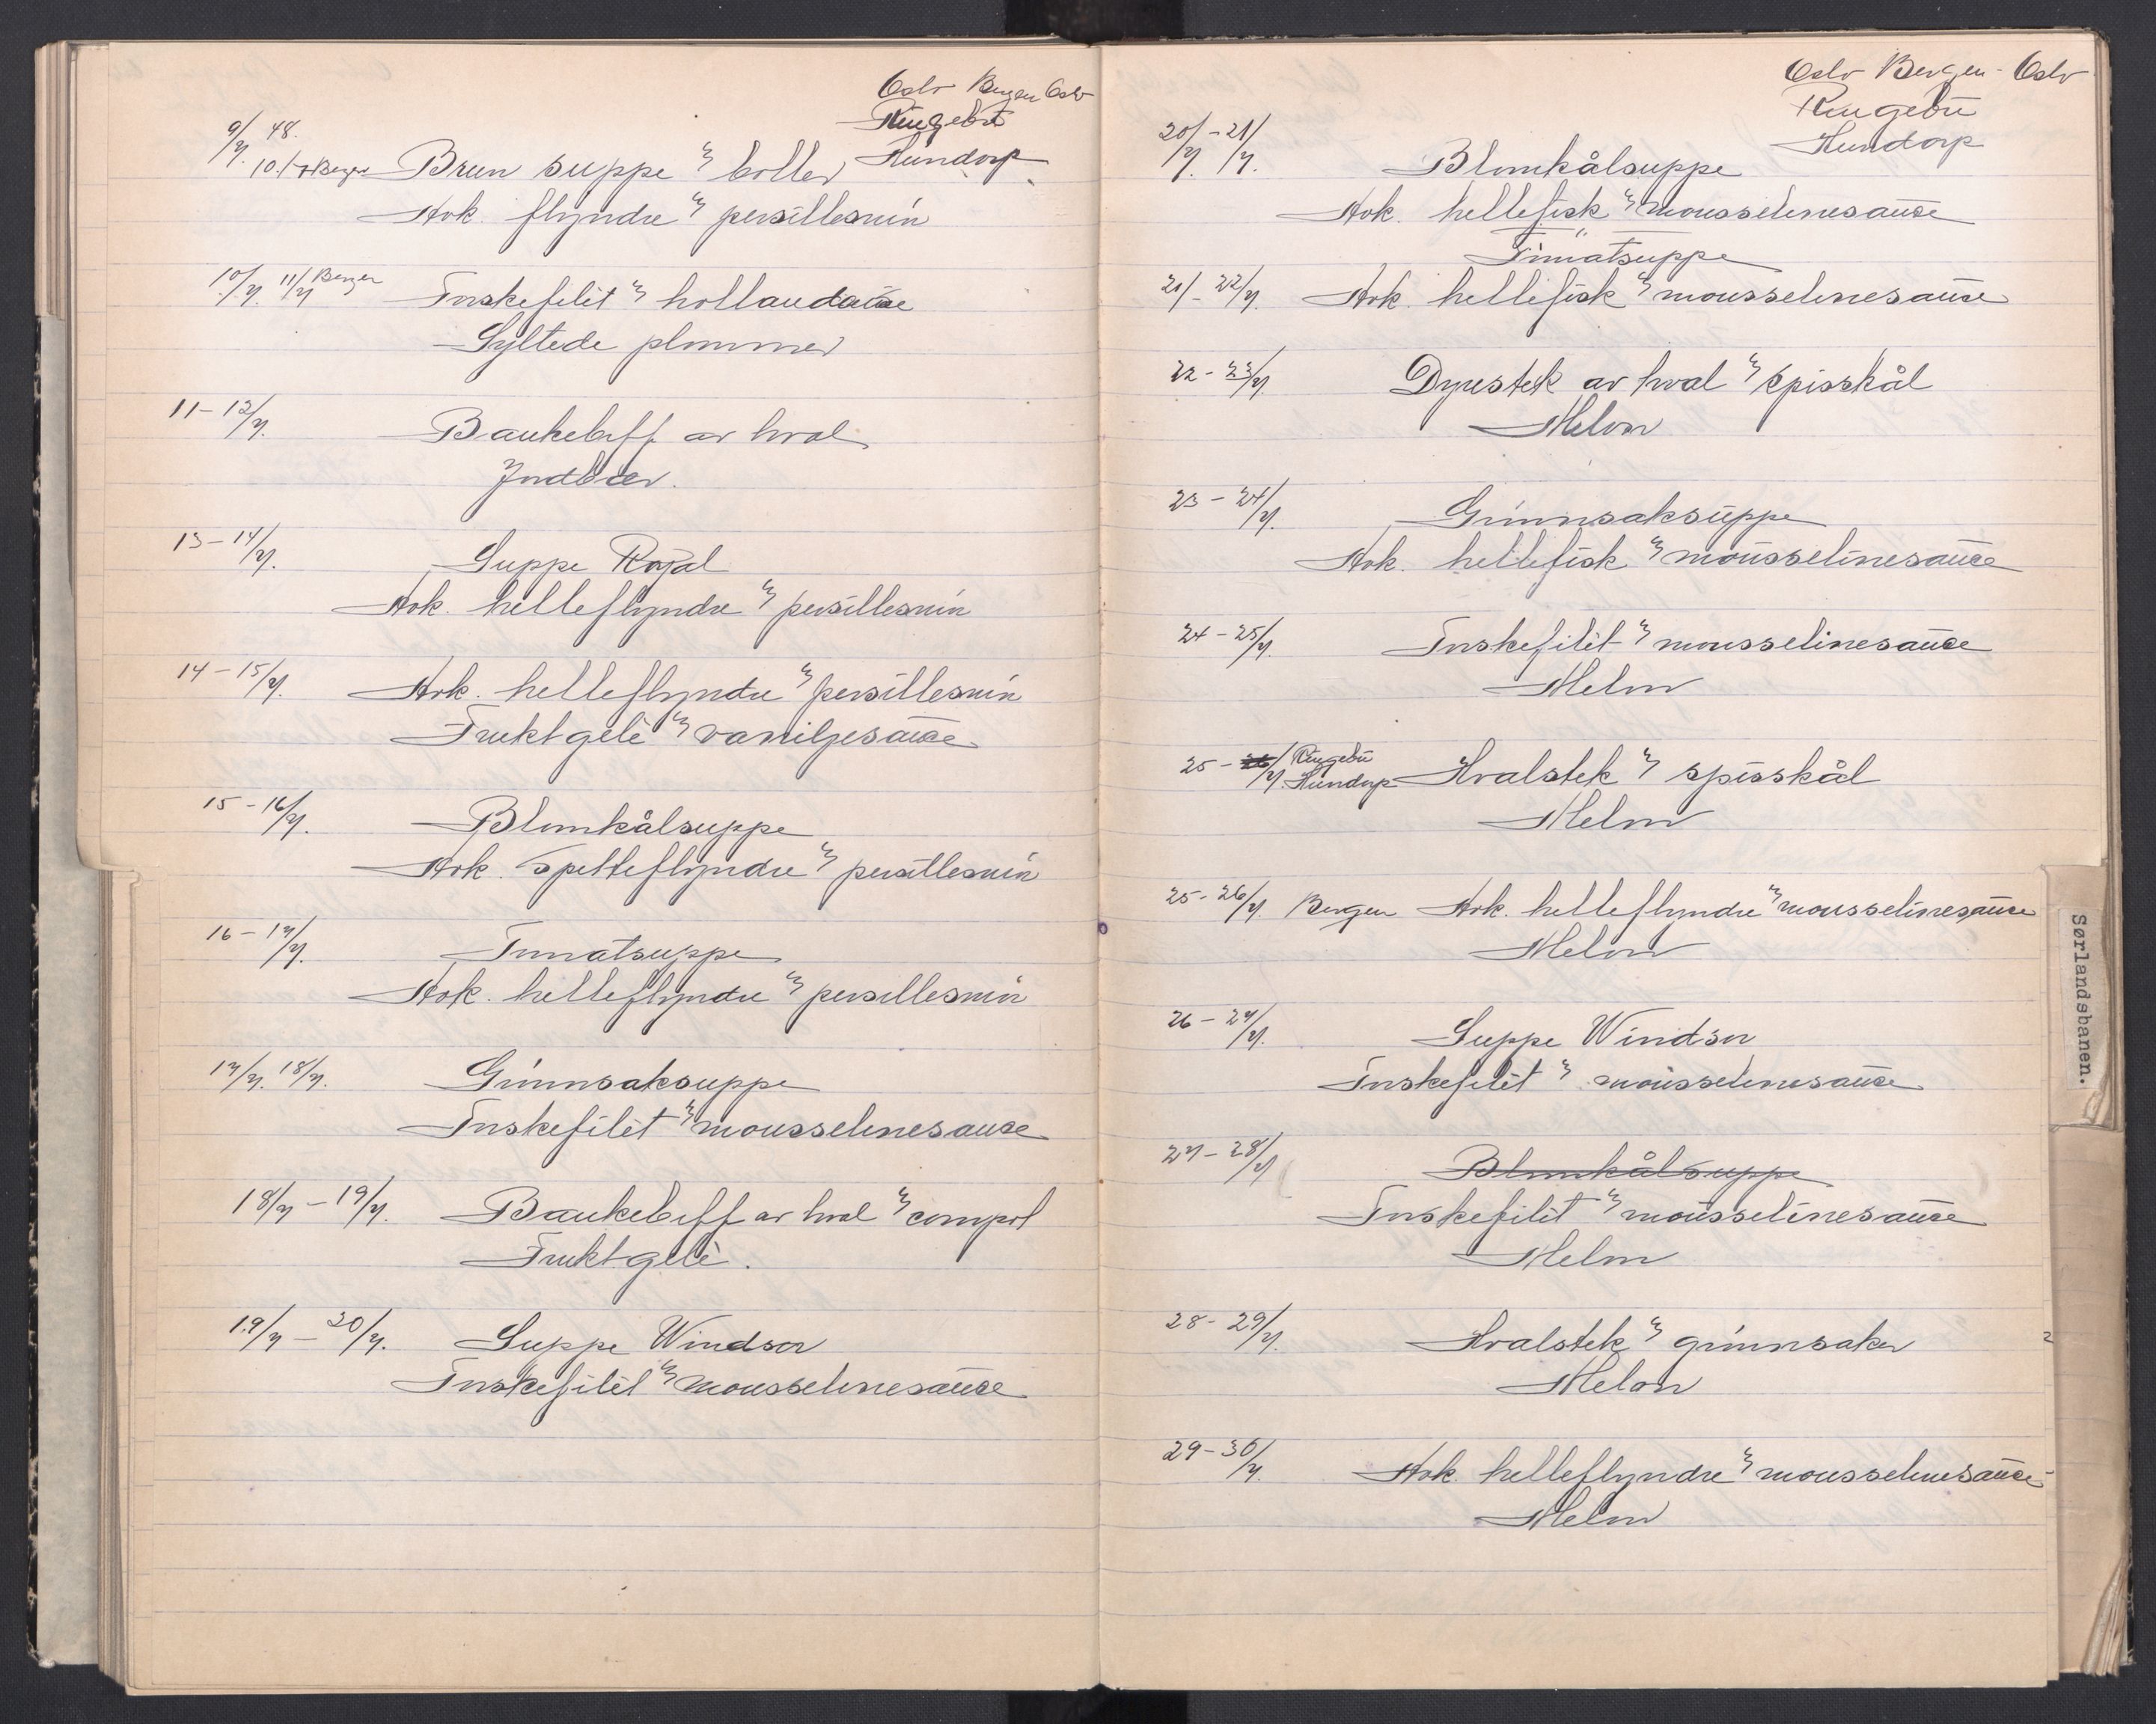 Oslo Bergen Oslo
Ringebu
Hundorp
9/7. 48.
10/7 Bergen Brun suppe m/ boller
Kok. flyndre m/ persillesmør
10/7. 11/7 Bergen Torskefilet m/ hollandaise
Syltede plommer
11-12/7. Bankebiff av hval
Jordbær.
13-14/7. Suppe Royal
Kok. helleflyndre m/ persillesmør
14-15/7. Kok. helleflyndre m/ persillesmør
Fruktgelè m/ vaniljesause
15-16/7. Blomkålsuppe
Kok. Spetteflyndre m/ persillesmør
16-17/7. Tomatsuppe
Kok. helleflyndre m/ persillesmør
17/7. 18/7. Grønnsaksuppe
Torskefilet m/ mousselinesause
18/7-19/7. Bankebiff av hval m/ compot
Fruktgelè.
19/7-20/7. Suppe Windsor
Torskefilet m/ mousselinesause
Oslo Bergen-Oslo
Ringebu
Hundorp
20/7.-21/7. Blomkålsuppe
Kok. hellefisk m/ mousselinesause
Tomatsuppe
21/-22/7. Kok. hellefisk m/ mousselinesause
22-23/7. Dyrestek av hval m/ spisskål
Melon
23-24/7. Grønnsaksuppe
Kok. hellefisk m/ mousselinesause
24-25/7. Torskefilet m/ mousselinesause
Melon
25-26/7. Ringebu Hundorp Hvalstek m/ spisskål
Melon
25-26/7. Bergen Kok. helleflyndre m/ mousselinesause
Melon
26-27/7. Suppe Windsor
Torskefilet m/ mousselinesause
27-28/7 Blomkålsuppe
Torskefilet m/ mousselinesause
Melon
28-29/7. Hvalstek m/ grønnsaker
Melon
29-30/7. Kok. helleflyndre m/ mousselinesause
Melon
Sørlandsbanen.